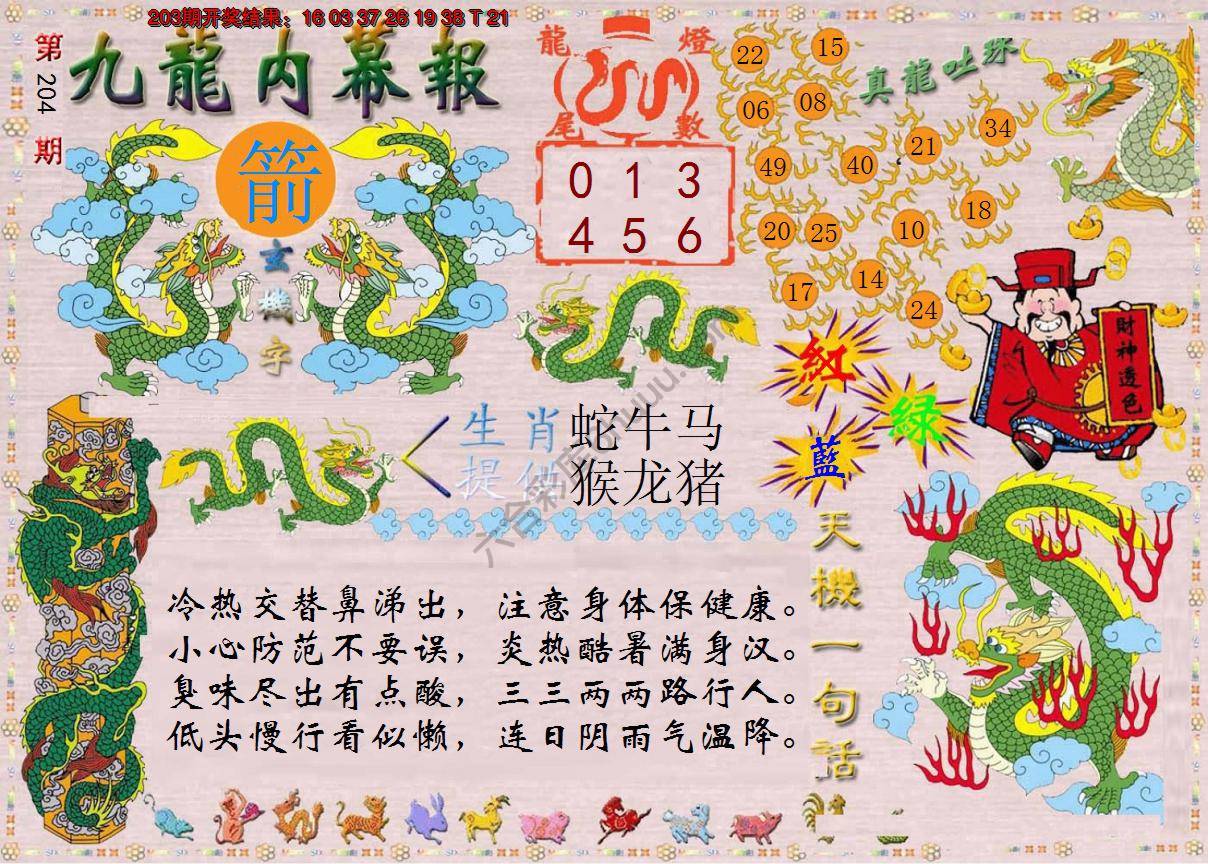 203期开奖结果：16 03 37 26 19 38 T 21
第204期
九龍内幕報
箭
玄機字
龍燈
尾數
0 1 3
4 5 6
真龍吐珠
22 15
06 08
49 40 21 34
20 25 10 18
17 14 24
紅
綠
藍
財神透色
生肖 蛇牛马
提供 猴龙猪
天機一句話
冷热交替鼻涕出，注意身体保健康。
小心防范不要误，炎热酷暑满身汉。
臭味尽出有点酸，三三两两路行人。
低头慢行看似懒，连日阴雨气温降。